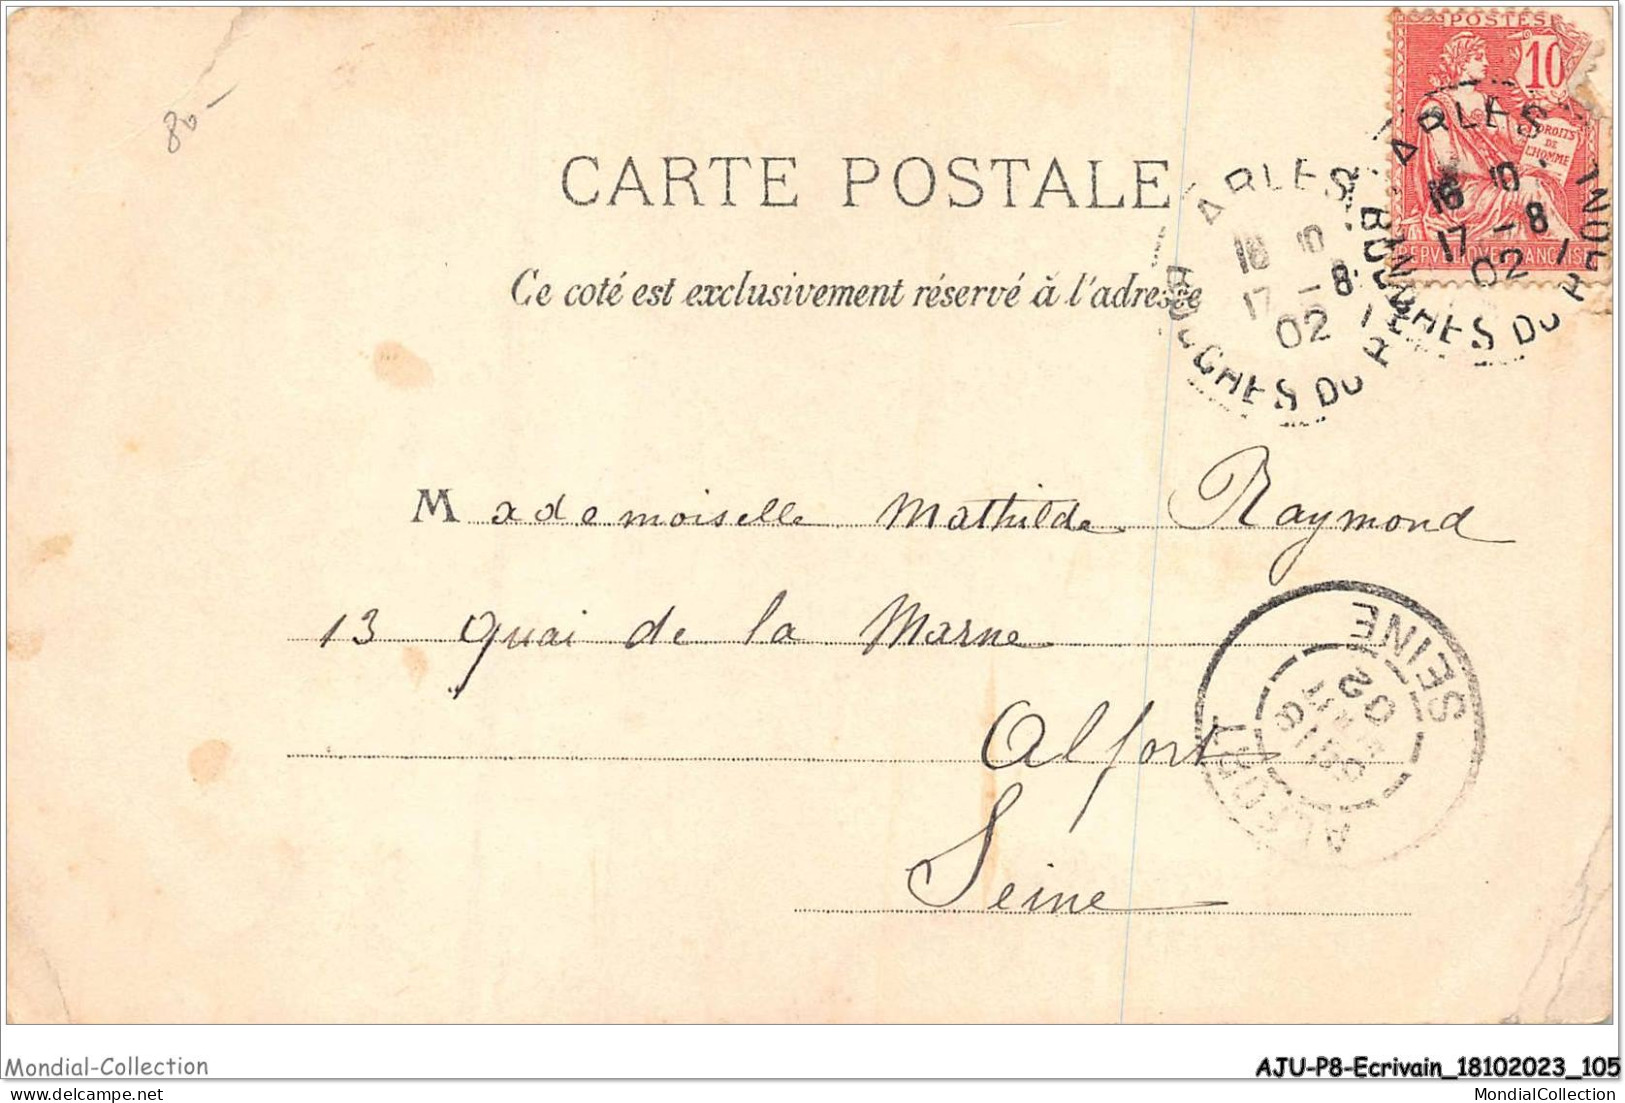 80-
POSTES
10
DROITS
DE
L'HOMME
CARTE POSTALE
ARLES
16 10
17 - 8
02
BOUCHES DU RHONE
ARLES
16 10
17 - 8
02
BOUCHES DU RHONE
Ce coté est exclusivement réservé à l'adresse
Mademoiselle Mathilde Raymond
13 Quai de la Marne
Alfort
Seine
ALFORT
18
02
SEINE
Mondial-Collection
AJU-P8-Ecrivain_18102023_105
MondialCollection
MondialCollection